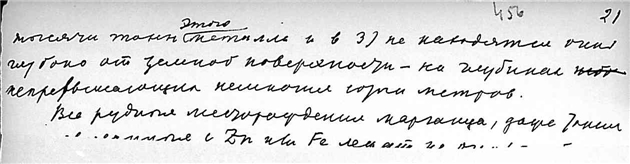 456 21
этого
тысячи тонн металла и в 3) не находятся очень
глубоко от земной поверхности – на глубинах
непревышающих немногие сотни метров.
Все рудные месторождения марганца, даже
с Zn или Fe лежат